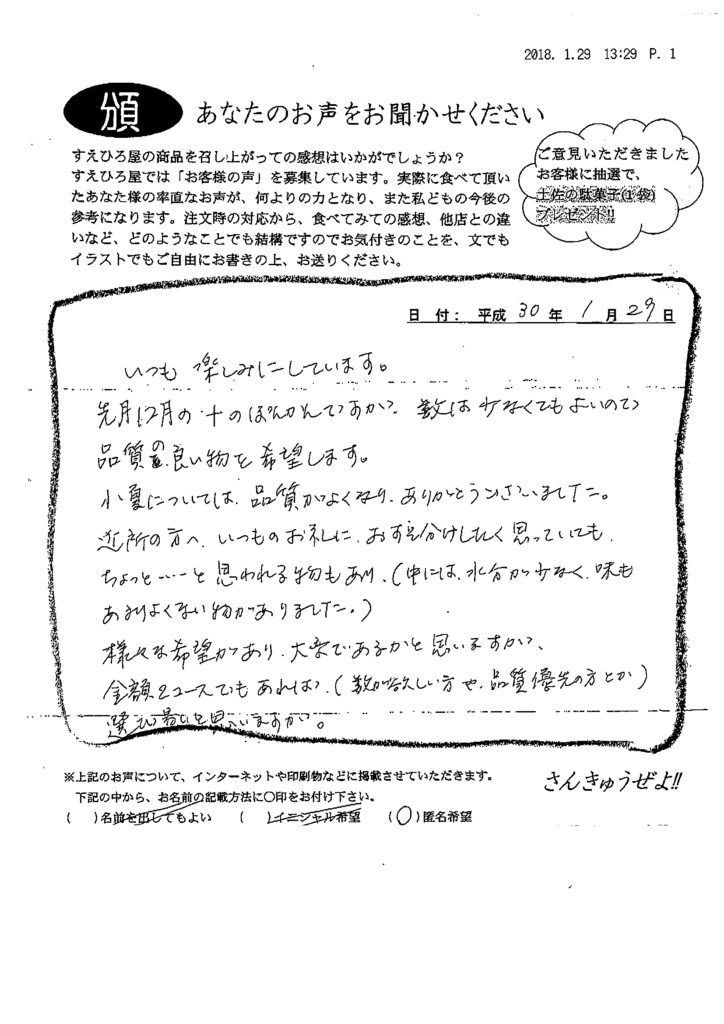 2018. 1.29 13:29 P. 1
頒
あなたのお声をお聞かせください
すえひろ屋の商品を召し上がっての感想はいかがでしょうか?
すえひろ屋では「お客様の声」を募集しています。実際に食べて頂い
たあなた様の率直なお声が、何よりの力となり、また私どもの今後の
参考になります。注文時の対応から、食べてみての感想、他店との違
いなど、どのようなことでも結構ですのでお気付きのことを、文でも
イラストでもご自由にお書きの上、お送りください。
ご意見いただきました
お客様に抽選で、
土佐の駄菓子(1袋)
プレゼント!!
日 付: 平成 30 年 1 月 29 日
いつも 楽しみにしています。
先月12月の 十のぽんかんですが、数は少なくてもよいので
品質の良い物を希望します。
小夏については、品質がよくなり、ありがとうございました。
近所の方へ、いつものお礼に、おすそ分けしたく思っていても、
ちょっと……と思われる物もあり、(中には、水分が少なく、味も
あまりよくない物がありました。)
様々な希望があり、大変であるかと思いますが、
金額2コースでもあれば、(数が欲しい方や、品質優先の方とか)
選び易いと思いますが。
※上記のお声について、インターネットや印刷物などに掲載させていただきます。
下記の中から、お名前の記載方法に○印をお付け下さい。
( )名前を出してもよい ( )イニシャル希望 (○)匿名希望
さんきゅうぜよ!!